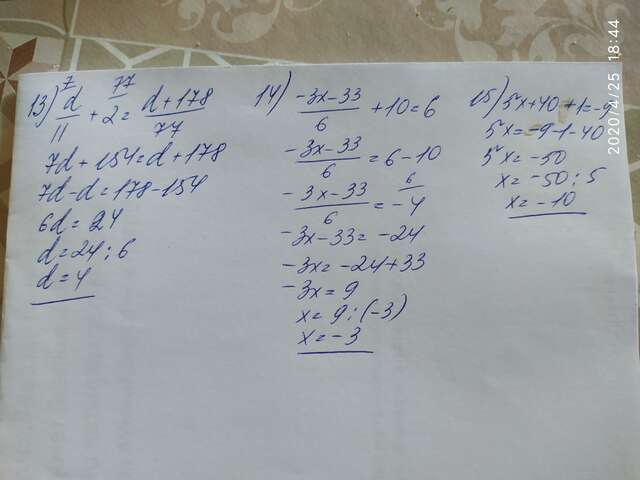 13) 7 d/11 + 77 2 = d+178/77
7d+154=d+178
7d-d=178-154
6d=24
d=24:6
d=4
14) -3x-33/6 +10=6
-3x-33/6 =6-10
-3x-33/6 = 6 -4
-3x-33=-24
-3x=-24+33
-3x=9
x=9:(-3)
x=-3
15) 5x+40+1=-9
5x=-9-1-40
5x=-50
x=-50:5
x=-10
2020/4/25 18:44